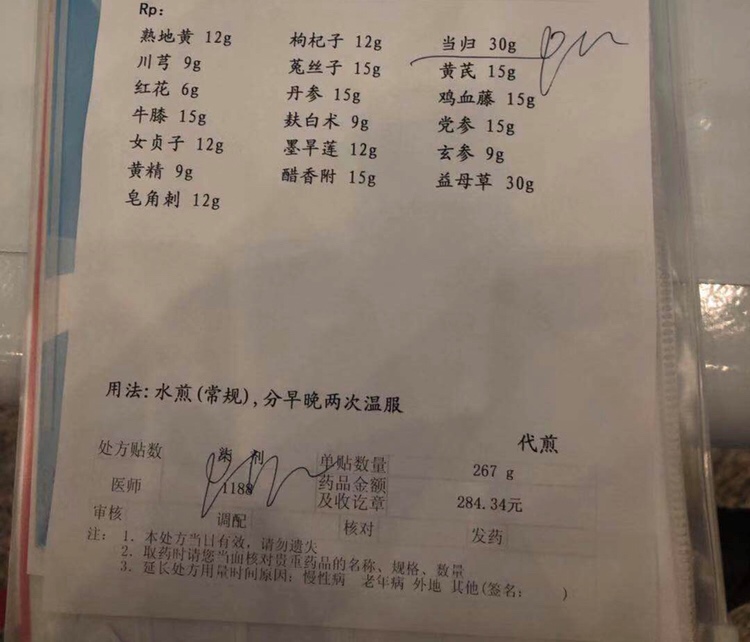 Rp:
熟地黄 12g 枸杞子 12g 当归 30g
川芎 9g 菟丝子 15g 黄芪 15g
红花 6g 丹参 15g 鸡血藤 15g
牛膝 15g 麸白术 9g 党参 15g
女贞子 12g 墨旱莲 12g 玄参 9g
黄精 9g 醋香附 15g 益母草 30g
皂角刺 12g
用法:水煎(常规),分早晚两次温服
代煎
处方贴数 柒 剂 单贴数量 267 g
医师 1188 药品金额及收讫章 284.34元
审核 调配 核对 发药
注: 1. 本处方当日有效, 请勿遗失
2. 取药时请您当面核对贵重药品的名称、规格、数量
3. 延长处方用量时间原因: 慢性病 老年病 外地 其他(签名: )